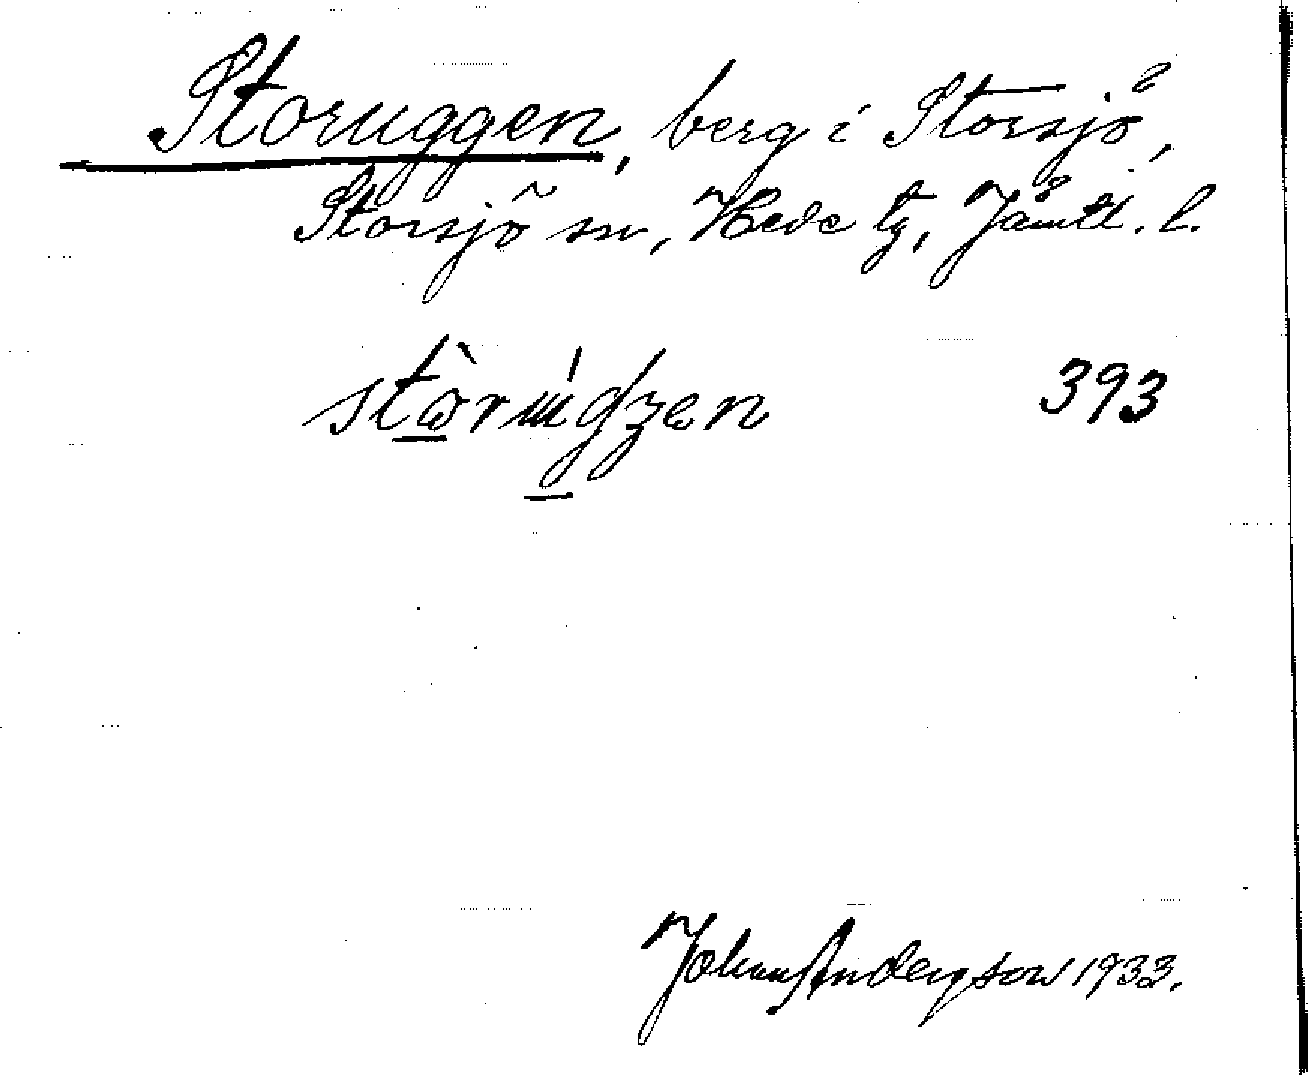 Storuggen, berg i Storsjö,
Storsjö sn, Hede tg, Jämtl. l.
393
Johan Andersson 1933.